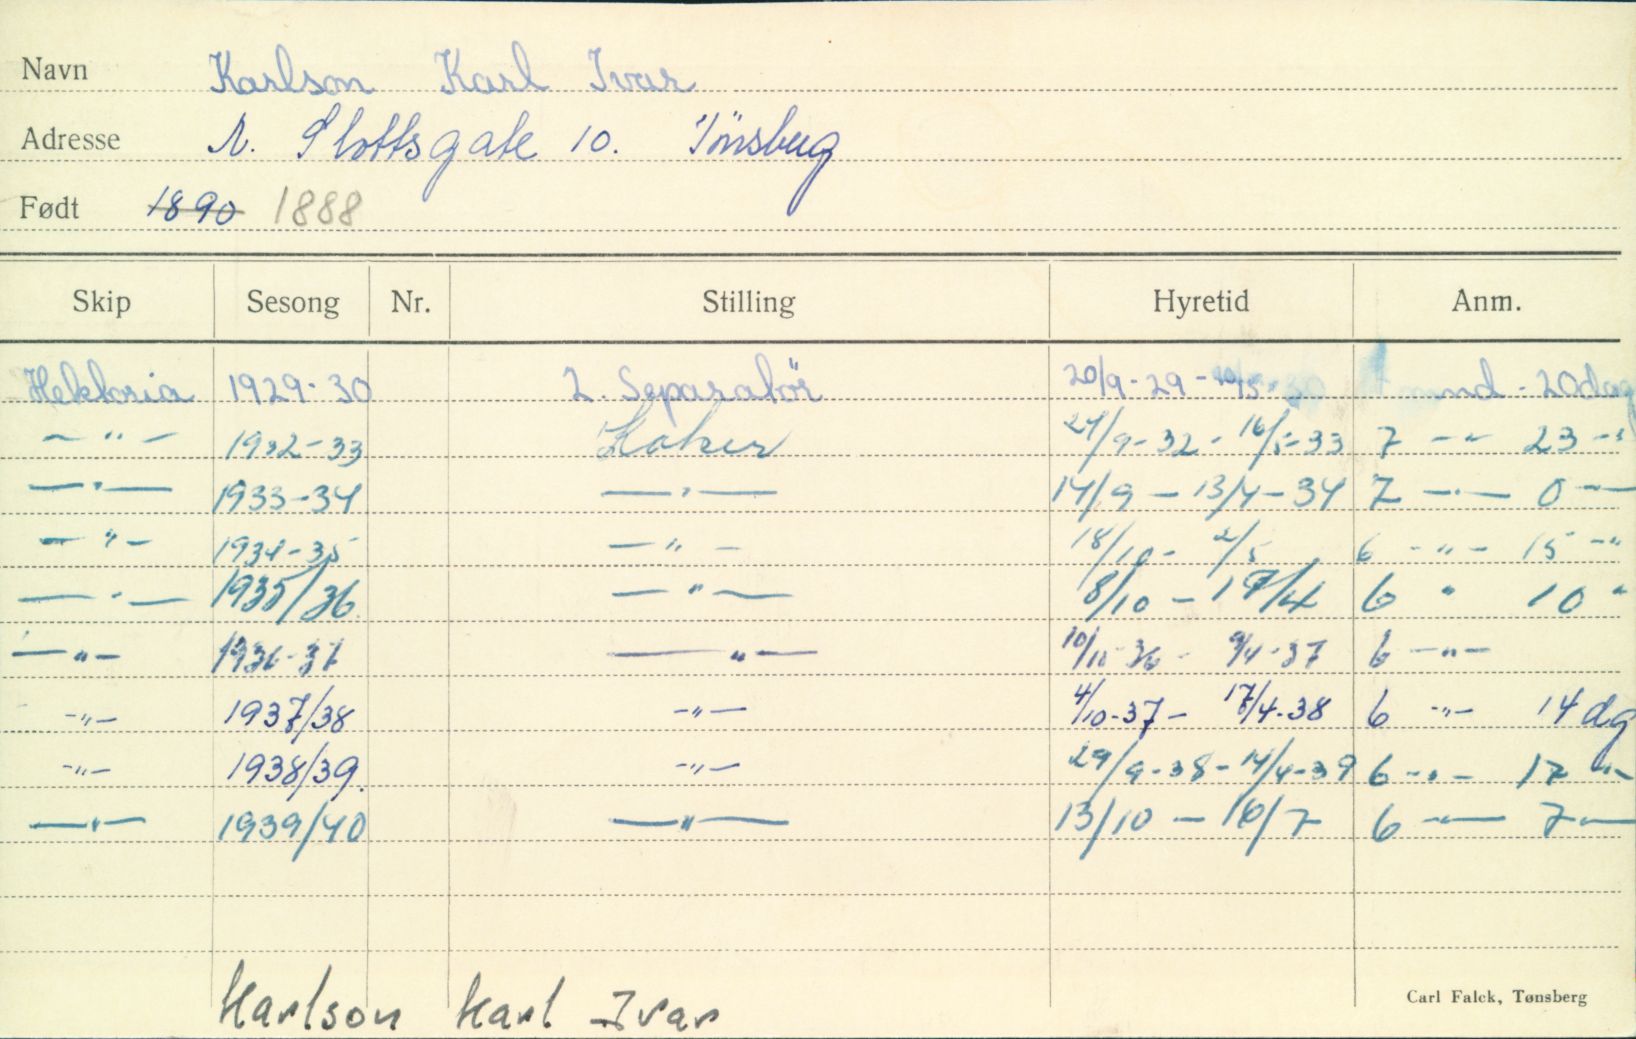 Navn Karlson Karl Ivar
Adresse N. Slottsgate 10. Tönsberg
Født 1890 1888
Skip Sesong Nr. Stilling Hyretid Anm.
Hektoria 1929-30 2. Separatör 20/9-29- mnd - 20dag
—"— 1932-33 Koker 24/9-32-16/5-33 7 —"— 23 —"
—"— 1933-34 —"— 14/9 - 13/4-34 7 —"— 0 —"—
—"— 1934-35 —"— 18/10- 2/5 6 —"— 15 —"
—"— 1935/36 —"— 8/10 - 17/4 6 " 10 "
—"— 1936-37 —"— 10/10-36 - 9/4-37 6 —"—
—"— 1937/38 —"— 4/10-37 - 17/4-38 6 —"— 14 dg
—"— 1938/39. —"— 29/9-38-14/4-39 6 —"— 17 —"—
—"— 1939/40 —"— 13/10 - 16/7 6 —"— 7 —"—
Karlson Karl Ivar
Carl Falck, Tønsberg